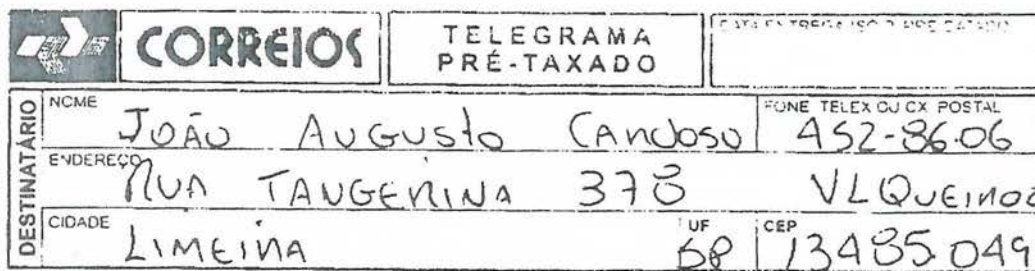 CORREIOS
TELEGRAMA
PRÉ-TAXADO
DESTINATÁRIO
NOME
JOÃO AUGUSTO CARDOSO
FONE TELEX OU CX POSTAL
452-86.06
ENDEREÇO
RUA TANGERINA 378 VL QUEIROZ
CIDADE
LIMEIRA
UF
SP
CEP
13485.049